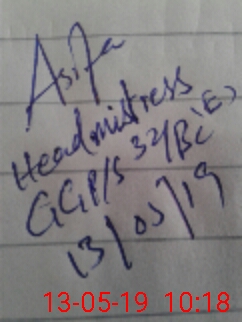 Asifa
Headmistress
GGP/S 32/BC (E)
13/05/19
13-05-19 10:18